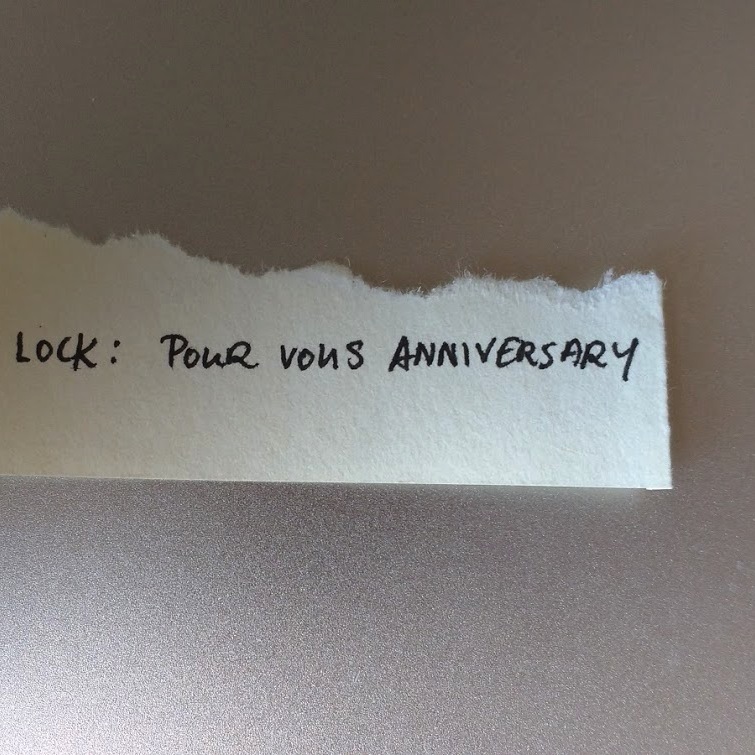 LOCK: POUR VOUS ANNIVERSARY